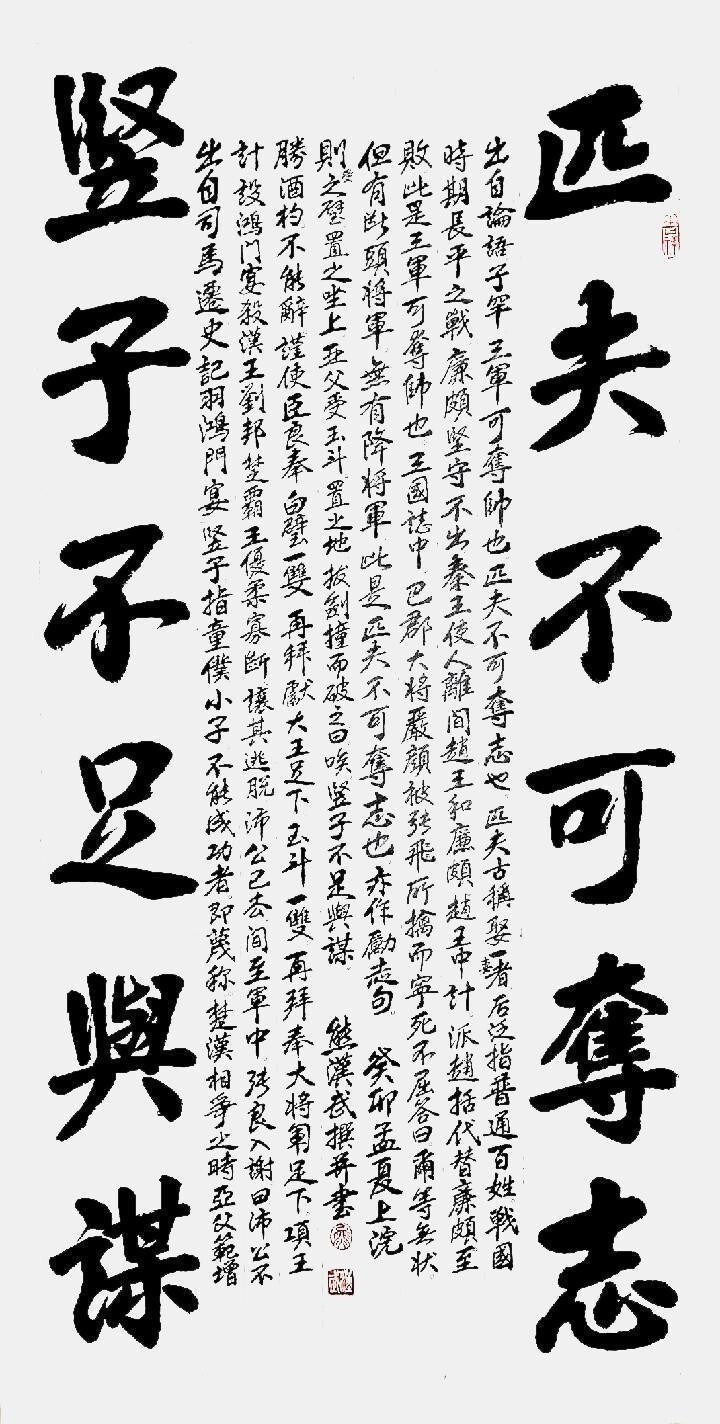 匹夫不可奪志
出自論語子罕 三軍可奪帥也匹夫不可奪志也 匹夫古稱娶妻者后泛指普通百姓戰國
時期長平之戰廉頗堅守不出秦王使人離間趙王和廉頗趙王中計派趙括代替廉頗至
敗此是三軍可奪帥也三國誌中巴郡大將嚴顏被張飛所擒而寧死不屈答曰爾等無狀
但有斷頭將軍無有降將軍此是匹夫不可奪志也亦作勵志句 癸卯孟夏上浣
竪子不足與謀
出自司馬遷史記羽鴻門宴 竪子指童僕小子不能成功者即蔑称楚漢相爭之時亞父範增
計設鴻門宴殺漢王劉邦楚霸王優柔寡斷讓其逃脫沛公已去間至軍中張良入謝曰沛公不
勝酒杓不能辭謹使臣良奉白璧一雙再拜獻大王足下玉斗一雙再拜奉大將軍足下項王
則受之璧置之坐上亞父受玉斗置之地拔劍撞而破之曰唉竪子不足與謀 熊漢武撰并書